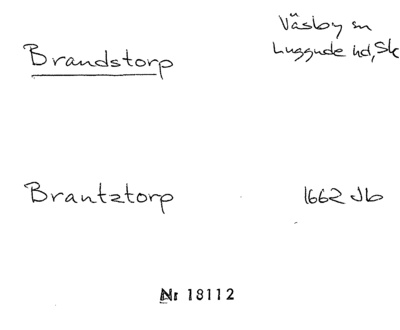 Väsby sn
Brandstorp
Luggude hd, Sk
Brantztorp 1662 Jb
Nr 18112